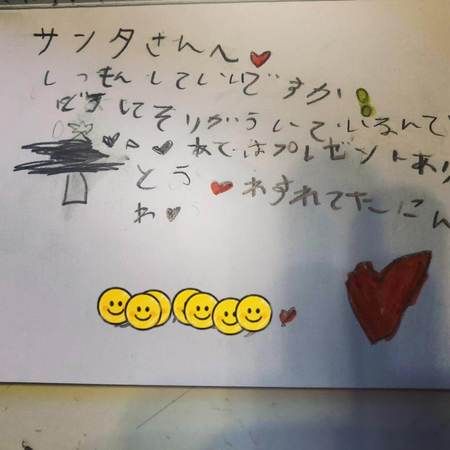 サンタさんへ
しつもんしていいですか
どうしてそりがういているんで
すか
ねではプレゼントあり
とう わすれてたにん
ね